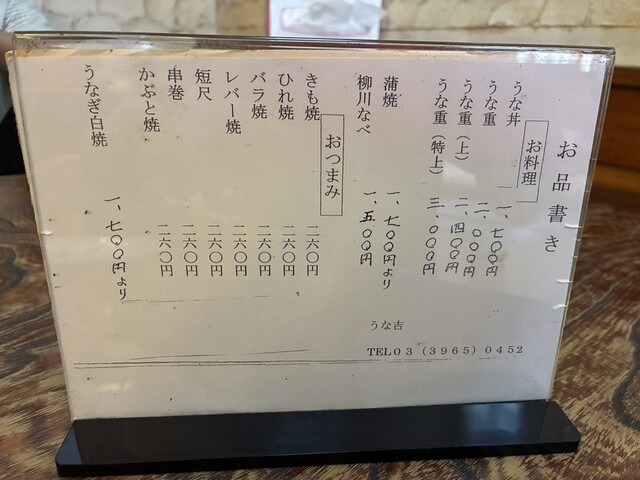 お品書き
お料理
うな丼 一、七〇〇円
うな重 二、〇〇〇円
うな重（上） 二、四〇〇円
うな重（特上） 三、〇〇〇円
蒲焼 一、七〇〇円より
柳川なべ 一、五〇〇円
おつまみ
きも焼 二六〇円
ひれ焼 二六〇円
バラ焼 二六〇円
レバー焼 二六〇円
短尺 二六〇円
串巻 二六〇円
かぶと焼 二六〇円
うなぎ白焼 一、七〇〇円より
うな吉
TEL03（3965）0452